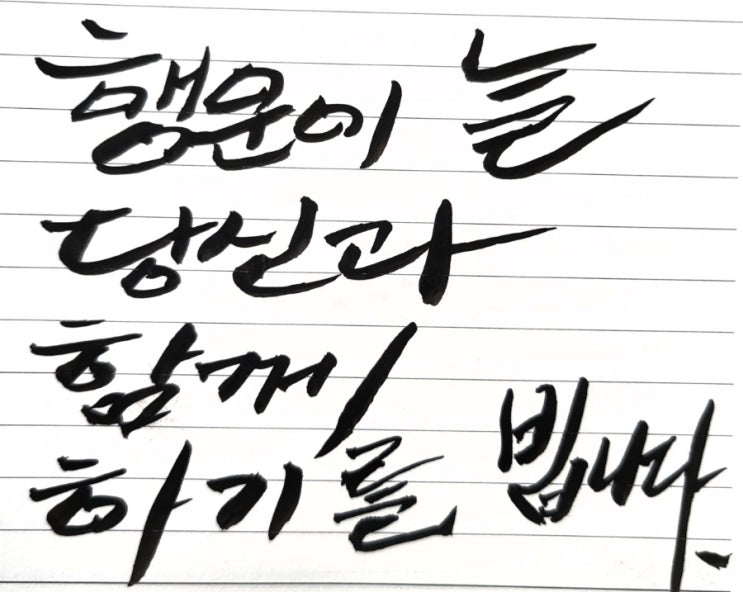 행운이 늘
당신과
함께
하기를 빕니다.